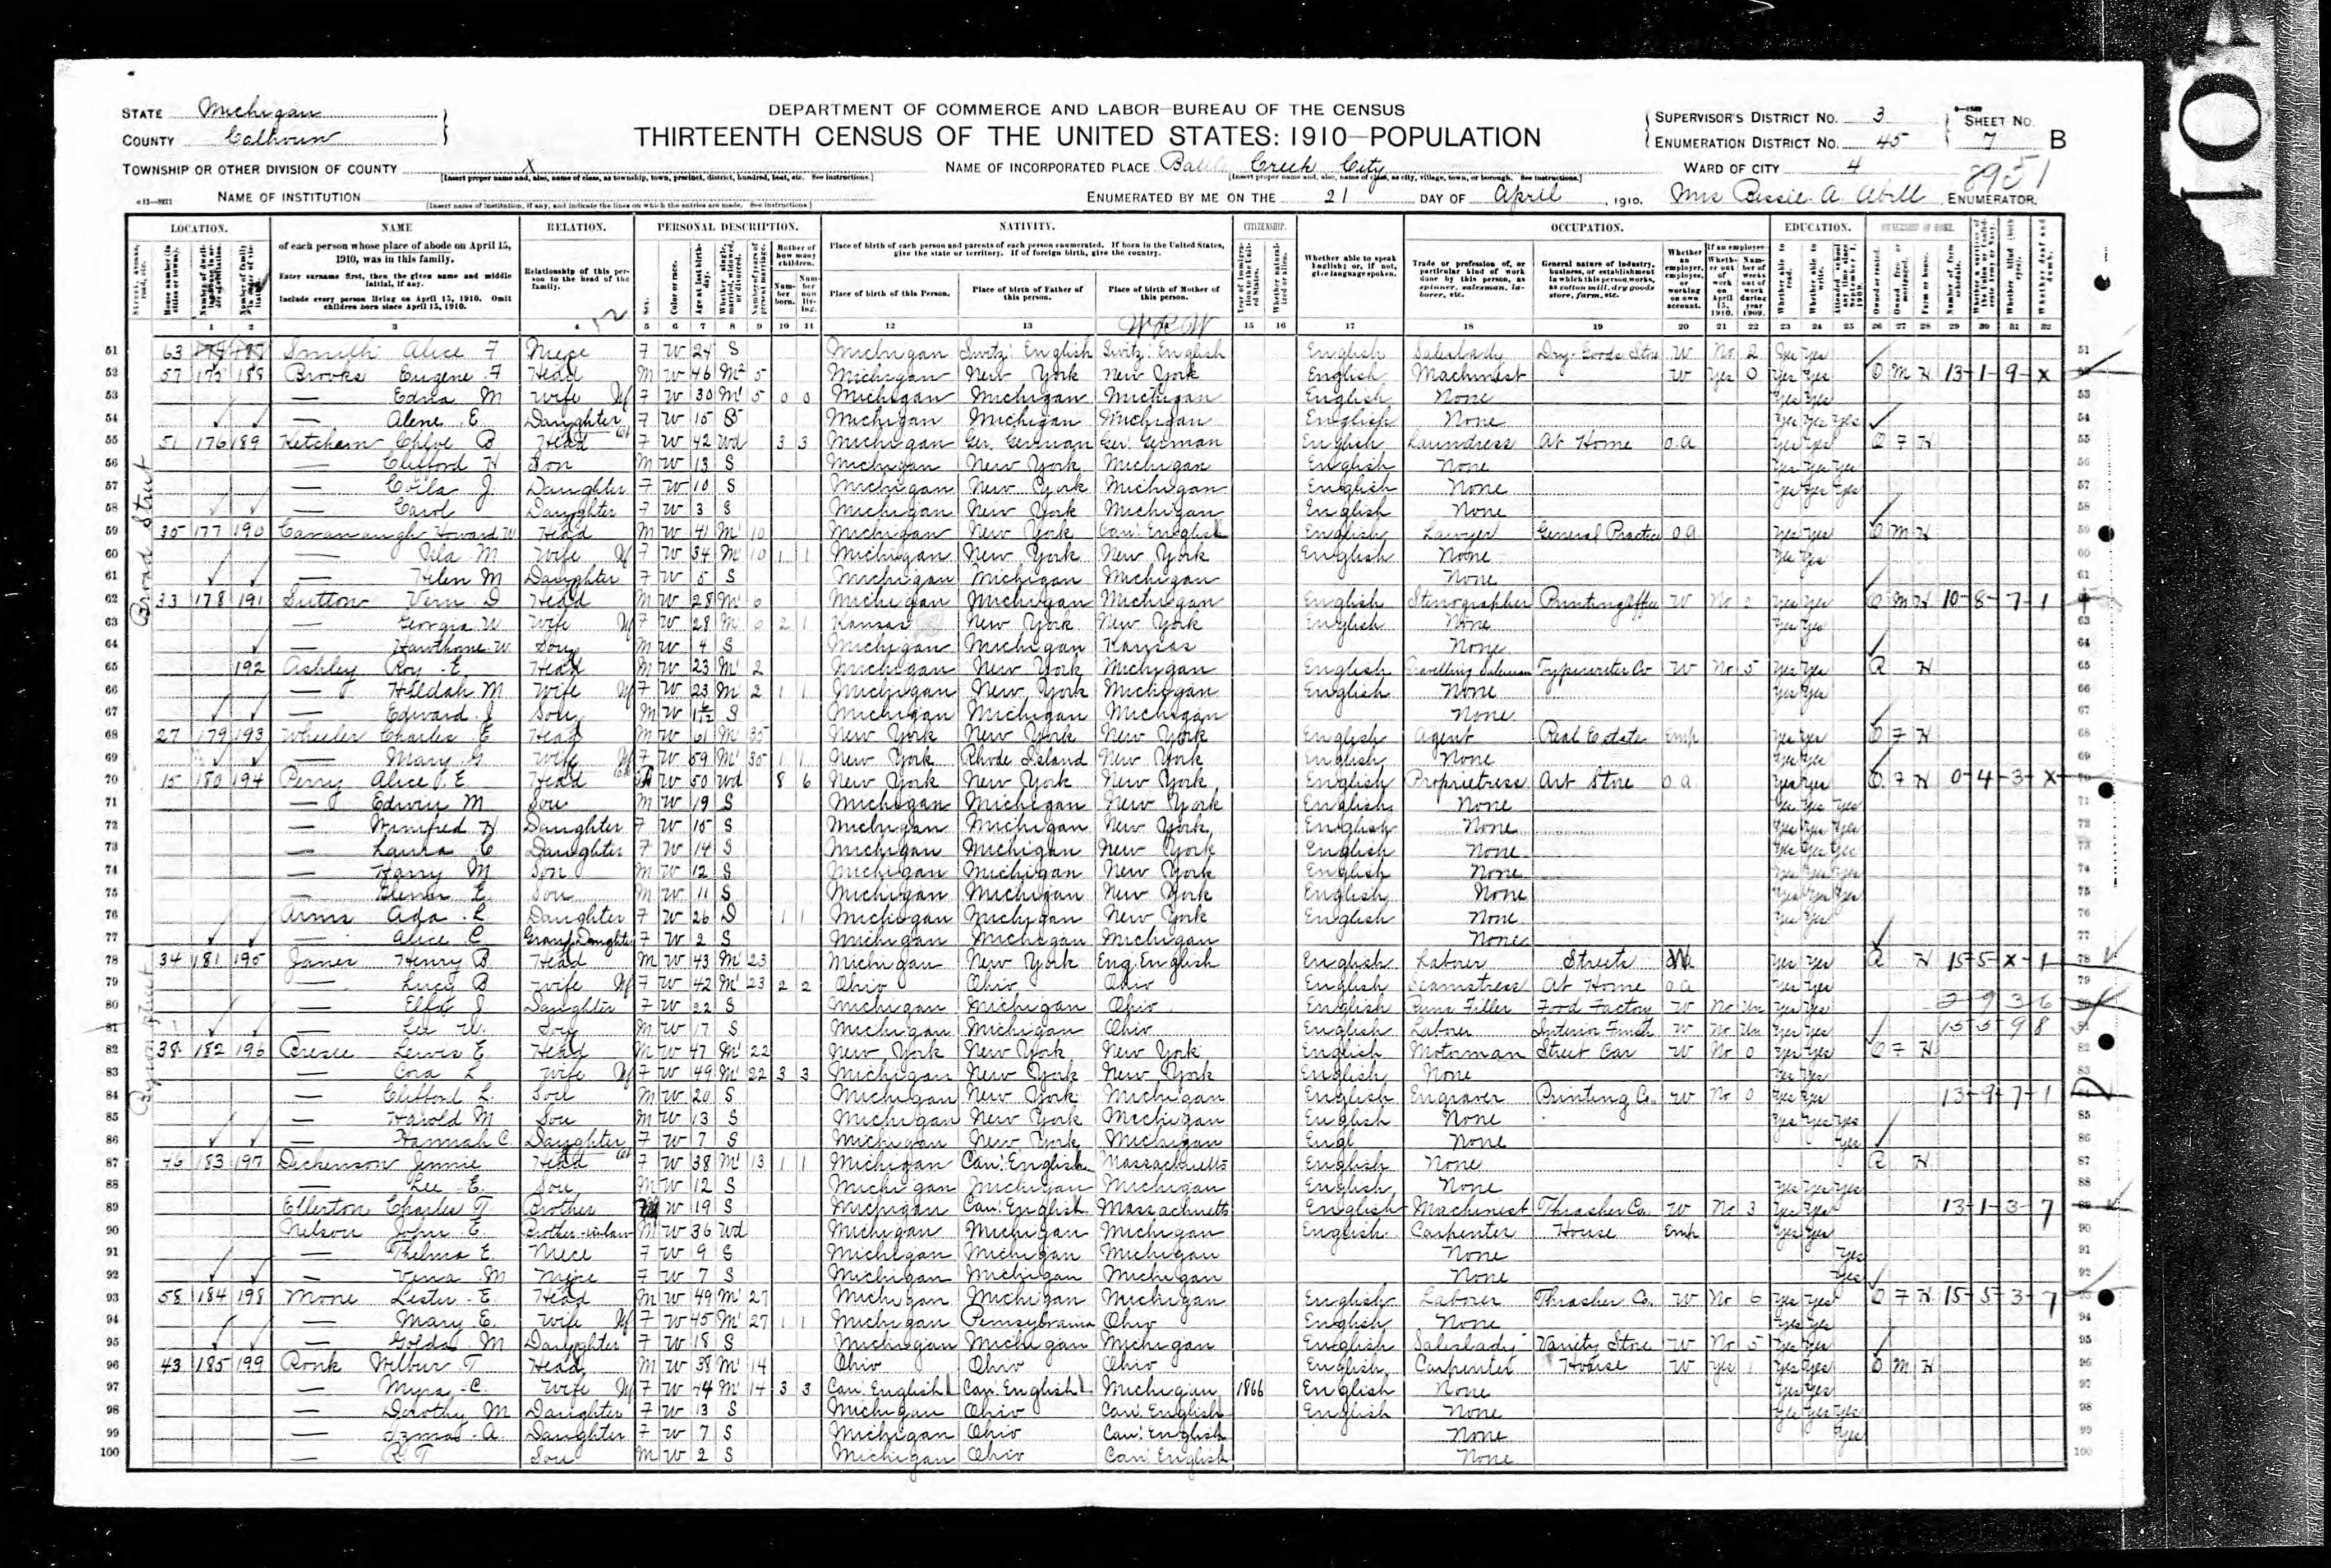 STATE Michigan
COUNTY Calhoun
TOWNSHIP OR OTHER DIVISION OF COUNTY X
[Insert proper name and, also, name of class, as township, town, precinct, district, hundred, beat, etc. See instructions.]
NAME OF INSTITUTION
[Insert name of institution, if any, and indicate the lines on which the entries are made. See instructions.]
DEPARTMENT OF COMMERCE AND LABOR—BUREAU OF THE CENSUS
THIRTEENTH CENSUS OF THE UNITED STATES: 1910—POPULATION
NAME OF INCORPORATED PLACE Creek City
[Insert proper name and, also, name of class, as city, village, town, or borough. See instructions.]
ENUMERATED BY ME ON THE 21 DAY OF April, 1910. Mrs Bessie A. Abell ENUMERATOR.
SUPERVISOR'S DISTRICT NO. 3
ENUMERATION DISTRICT NO. 45
SHEET NO. 7 B
WARD OF CITY 4
8951
LOCATION. NAME RELATION. PERSONAL DESCRIPTION. NATIVITY. CITIZENSHIP. OCCUPATION. EDUCATION. OWNERSHIP OF HOME.
of each person whose place of abode on April 15, 1910, was in this family.
Enter surname first, then the given name and middle initial, if any.
Include every person living on April 15, 1910. Omit children born since April 15, 1910.
Relationship of this person to the head of the family.
Place of birth of each person and parents of each person enumerated. If born in the United States, give the state or territory. If of foreign birth, give the country.
Place of birth of this Person. Place of birth of Father of this person. Place of birth of Mother of this person.
Whether able to speak English; or, if not, give language spoken.
Trade or profession of, or particular kind of work done by this person, as spinner, salesman, laborer, etc.
General nature of industry, business, or establishment in which this person works, as cotton mill, dry goods store, farm, etc.
Broad Street
51 63 Smith Alice F Niece F W 24 S Michigan Switz. English Switz. English English Saleslady Dry Goods Store W No 2 Yes Yes
52 57 175 188 Brooks Eugene F Head M W 46 M2 5 Michigan New York New York English Machinist W Yes 0 Yes Yes O M H 13-1-9-X
53 — Edna M Wife F W 30 M1 5 0 0 Michigan Michigan Michigan English None Yes Yes
54 — Alene E. Daughter F W 15 S Michigan Michigan Michigan English None Yes Yes Yes
55 51 176 189 Ketchem Chloe B Head F W 42 Wd 3 3 Michigan Ger. German Ger. German English Laundress At Home O.A Yes Yes O F H
56 — Clifford H Son M W 13 S Michigan New York Michigan English None Yes Yes Yes
57 — J. Daughter F W 10 S Michigan New York Michigan English None Yes Yes Yes
58 — Carol Daughter F W 3 S Michigan New York Michigan English None
59 35 177 190 Cavanaugh Howard W Head M W 41 M1 10 Michigan New York Can. English English Lawyer General Practice O.A. Yes Yes O M H
60 — M. Wife F W 34 M1 10 1 1 Michigan New York New York English None Yes Yes
61 — Helen M Daughter F W 5 S Michigan Michigan Michigan None
62 33 178 191 Sutton Vern D Head M W 28 M1 6 Michigan Michigan Michigan English Stenographer Printing Office W No 2 Yes Yes O M H 10-8-7-1
63 — Georgia W Wife F W 28 M 6 2 1 Kansas New York New York English None Yes Yes
64 — Hawthorne W. Son M W 4 S Michigan Michigan Kansas None
65 192 Ashley Roy E Head M W 23 M1 2 Michigan New York Michigan English Travelling Salesman Typewriter Co W No 5 Yes Yes R H
66 — Hildah M Wife F W 23 M 2 1 1 Michigan New York Michigan English None Yes Yes
67 — Edward J Son M W S Michigan Michigan Michigan None
68 27 179 193 Wheeler Charles E Head M W 61 M1 35 New York New York New York English Agent Real Estate Emp Yes Yes O F H
69 — Mary G Wife F W 59 M1 35 1 1 New York Rhode Island New York English None Yes Yes
70 15 180 194 Perry Alice E Head F W 50 Wd 8 6 New York New York New York English Proprietress Art Store O.A. Yes Yes O F H 0-4-3-X
71 — Edwin M Son M W 19 S Michigan Michigan New York English None Yes Yes Yes
72 — Winifred H Daughter F W 15 S Michigan Michigan New York English None Yes Yes Yes
73 — Laura C Daughter F W 14 S Michigan Michigan New York English None Yes Yes Yes
74 — Harry M Son M W 12 S Michigan Michigan New York English None Yes Yes Yes
75 — E. Son M W 11 S Michigan Michigan New York English None Yes Yes Yes
76 Arms Ada E Daughter F W 26 D 1 1 Michigan Michigan New York English None Yes Yes
77 — Alice C Grand Daughter F W 2 S Michigan Michigan Michigan None
78 34 181 195 Janes Henry B. Head M W 43 M1 23 Michigan New York Eng. English English Laborer Streets W Yes Yes R H 15-5-X-1
79 — Lucy B Wife F W 42 M1 23 2 2 Ohio Ohio Ohio English Seamstress At Home O.A Yes Yes
80 — Daughter F W 22 S Michigan Michigan Ohio English Filler Food Factory W No Yes Yes 2 9 3 6
81 — Lee W. Son M W 17 S Michigan Michigan Ohio English Laborer Interior Finish W No Yes Yes 15 5 9 8
82 38 182 196 Lewis E Head M W 47 M1 22 New York New York New York English Motorman Street Car W No 0 Yes Yes O F H
83 — Cora L Wife F W 49 M1 22 3 3 Michigan New York New York English None Yes Yes
84 — Clifford L. Son M W 20 S Michigan New York Michigan English Engraver Printing Co. W No 0 Yes Yes 13-9-7-1
85 — Harold M Son M W 13 S Michigan New York Michigan English None Yes Yes Yes
86 — Hannah C. Daughter F W 7 S Michigan New York Michigan Engl None Yes
87 46 183 197 Dickenson Jennie Head F W 38 M1 13 1 1 Michigan Can. English Massachusetts English None R H
88 — Lee E. Son M W 12 S Michigan Michigan Michigan English None Yes Yes Yes
89 Ellerton Charles T Brother M W 19 S Michigan Can. English Massachusetts English Machinist Thrasher Co. W No 3 Yes Yes 13-1-3-7
90 Nelson John E. Brother-inlaw M W 36 Wd Michigan Michigan Michigan English Carpenter House Emp Yes Yes
91 — Thelma E. Niece F W 9 S Michigan Michigan Michigan None Yes
92 — M Niece F W 7 S Michigan Michigan Michigan None Yes
93 58 184 198 Mone Lester E. Head M W 49 M1 27 Michigan Michigan Michigan English Laborer Thrasher Co. W No 6 Yes Yes O F H 15-5-3-7
94 — Mary E. Wife F W 45 M1 27 1 1 Michigan Pennsylvania Ohio English None Yes Yes
95 — Golda M Daughter F W 18 S Michigan Michigan Michigan English Saleslady Variety Store W No 5 Yes Yes
96 43 185 199 Ronk Wilbur T Head M W 38 M1 14 Ohio Ohio Ohio English Carpenter House W Yes 1 Yes Yes O M H
97 — Myra C. Wife F W 44 M1 14 3 3 Can. English Can. English Michigan 1866 English None Yes Yes
98 — Dorothy M Daughter F W 13 S Michigan Ohio Can. English English None Yes Yes Yes
99 — A. Daughter F W 7 S Michigan Ohio Can. English None Yes
100 — R T Son M W 2 S Michigan Ohio Can. English None